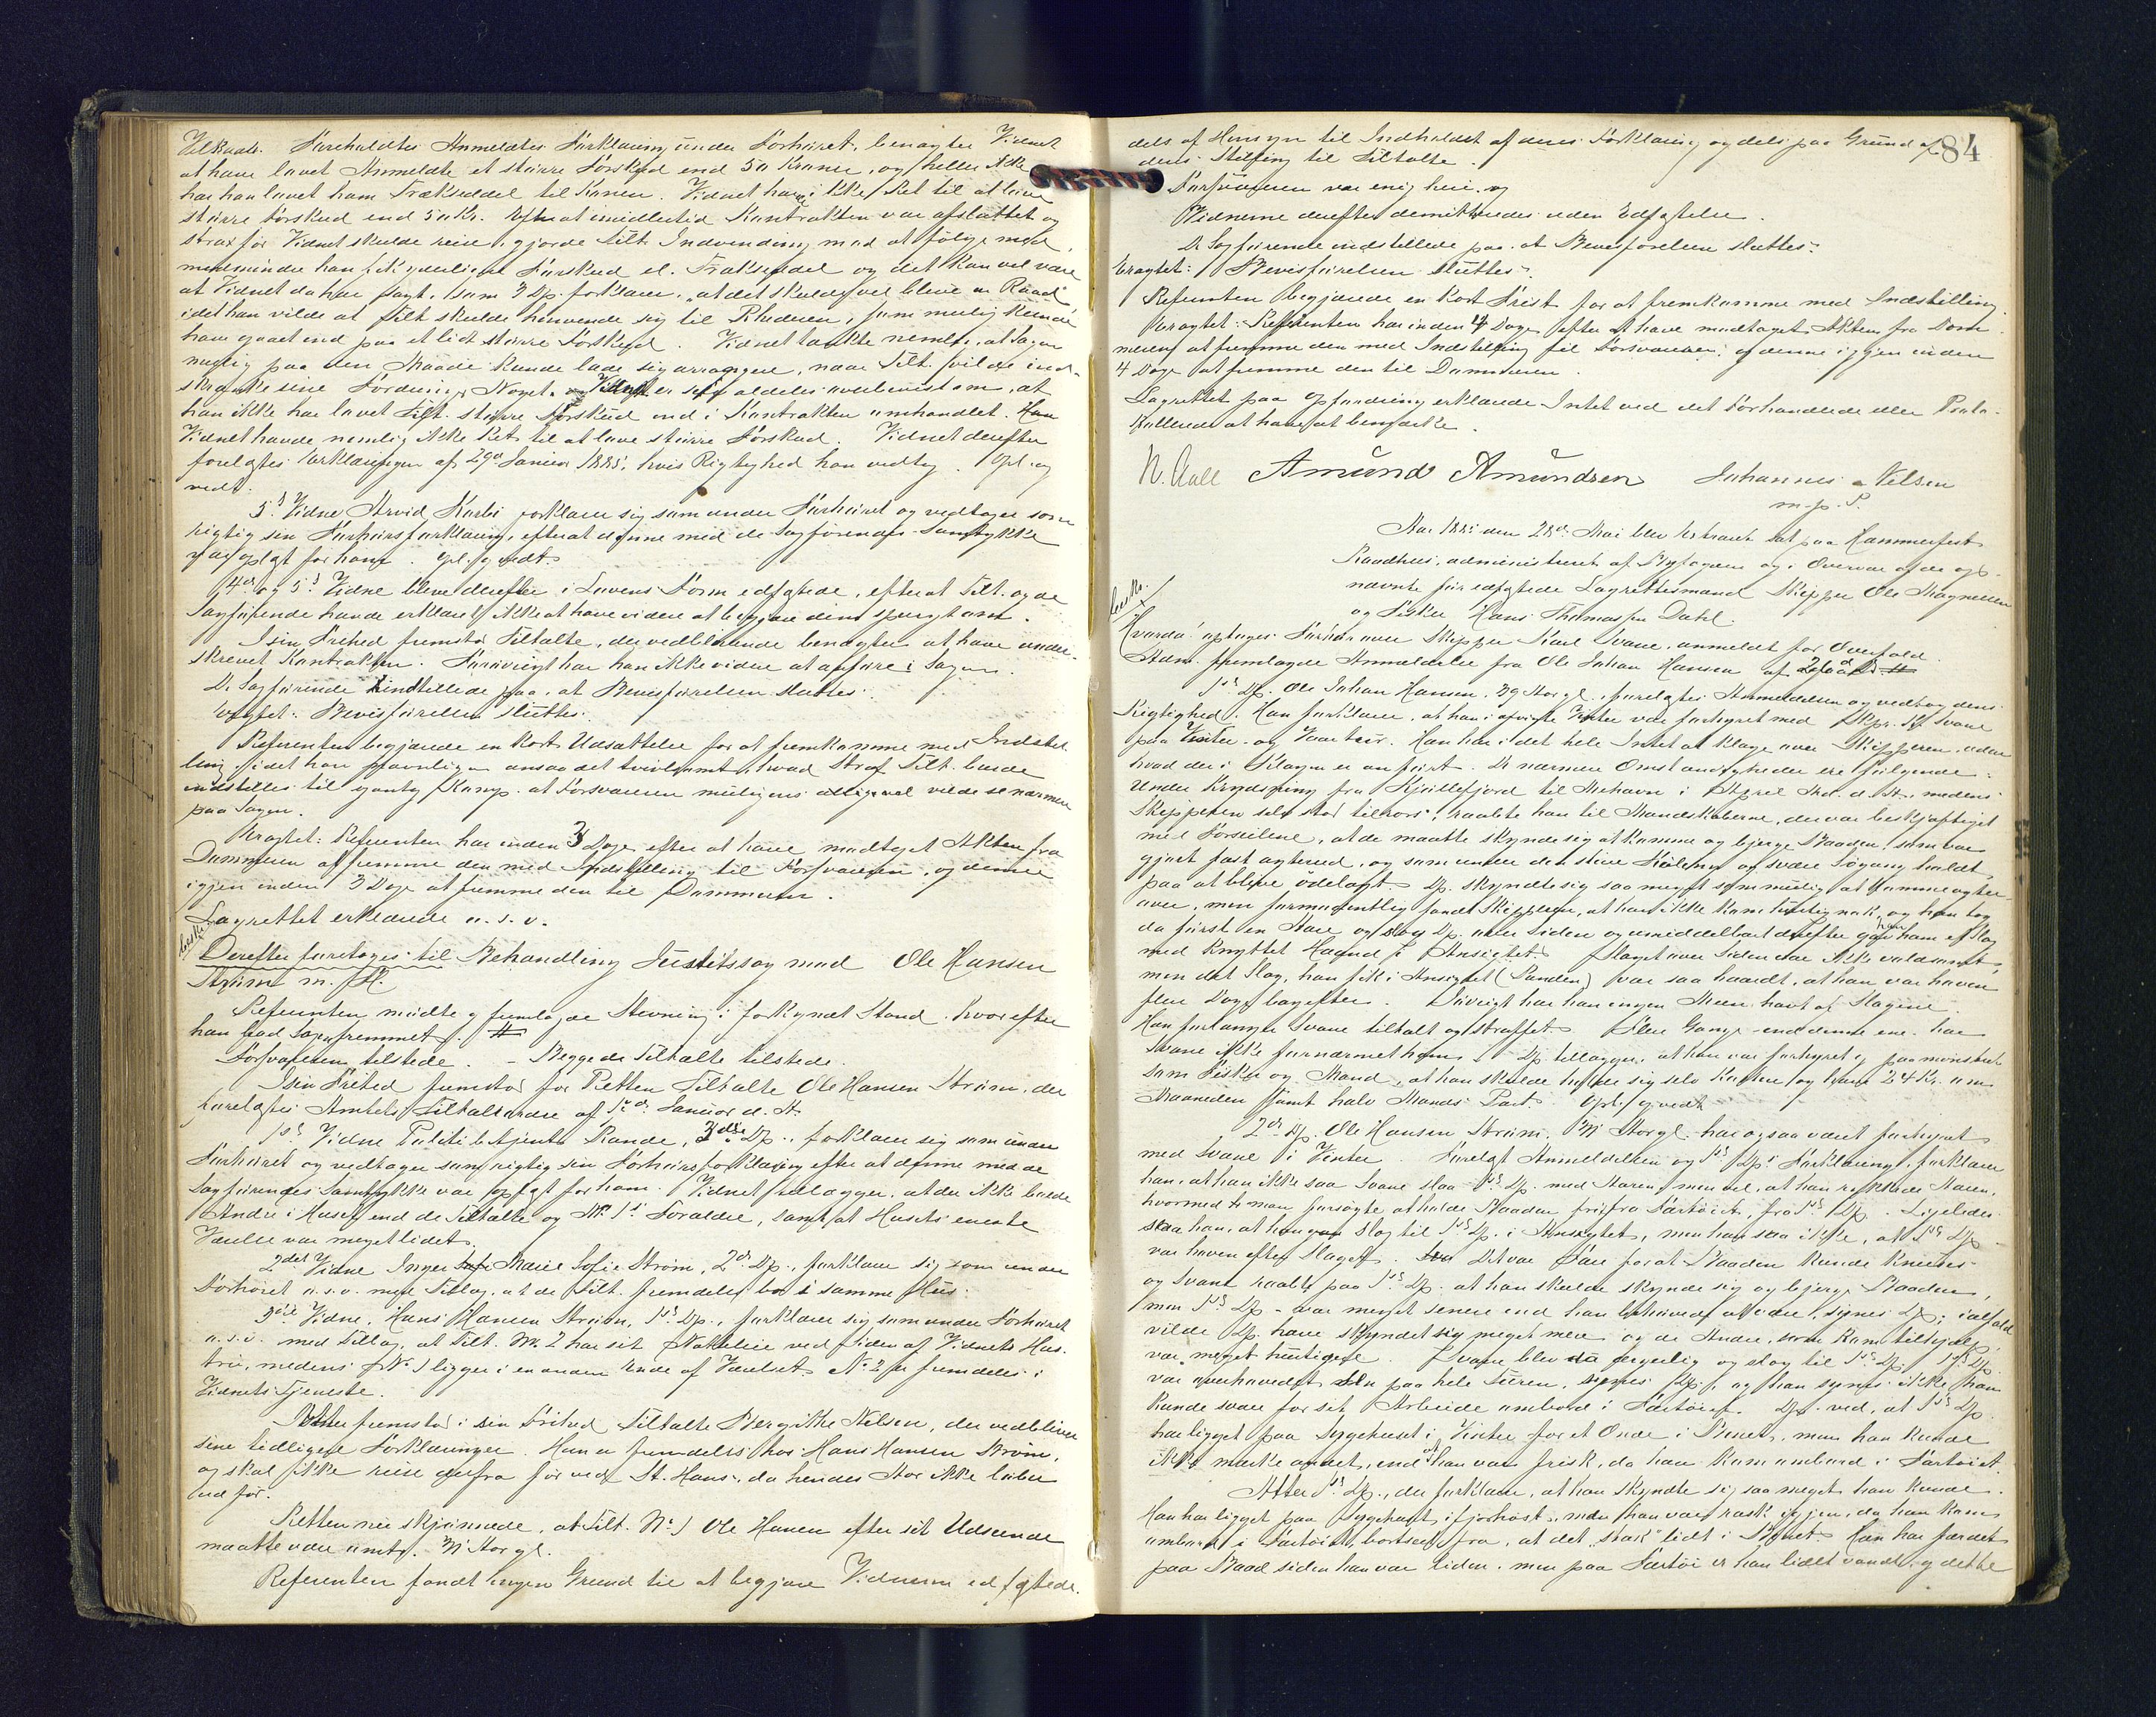 Vilkaar. Foreholdtes Anmeldtes Forklaring under Forhøret, benægter Vidnet
at have lovet Anmeldte et større Forskud end 50 Kroner, og heller ikke
har han lovet ham Trækseddel til Konen. Vidnet havde ikke Ret til at love
større Forskud end 50 Kr. Efterat imidlertid Kontrakten var afsluttet og
strax før Vidnet skulde reise, gjorde Tilt. Indvending mod at følge med,
medmindre han fik yderligere Forskud el. Trækseddel og det kan vel være
at Vidnet da har sagt, som 3 Dp. forklarer, "at det skulde vel blive en Raad"
idet han vilde at Tilt. skulde henvende sig til Rhederen, som mulig kunde
have gaaet ind paa et lidt større Forskud. Vidnet tænkte nemlig, at Sagen
mulig paa den Maade kunde lade sig arrangere, naar Tilt. vilde ind-
skrænke sine Fordringer Noget. Vidnet er sig aldeles overbevist om, at
han ikke har lovet Tilt. større Forskud end i Kontrakten omhandlet. Han
Vidnet havde nemlig ikke Ret til at love større Forskud. Vidnet derefter
forelagtes Erklæringen af 29de Januar 1885, hvis Rigtighed han vedtog. Opl. og
vedt.
5te Vidne Arvid Karbø forklarer sig som under Forhøret og vedtager som
rigtig sin Forhørsforklaring, efterat denne med de Sagførendes Samtykke
var oplæst for ham. Opl. og vedt.
4de og 5te Vidne bleve derefter i Lovens Form edfæstede, efterat Tilt. og de
Sagførende havde erklæret ikke at have videre at begjære dem spurgt om.
I sin Frihed fremstod Tiltalte, der vedblivende benægter at have under-
skrevet Kontrakten. Forøvrigt har han ikke videre at anføre i Sagen.
De Sagførende indstillede paa, at Bevisførelsen sluttes.
Eragtet: Bevisførelsen sluttes.
Referenten begjærede en kort Udsættelse for at fremkomme med Indstil-
ling, idet han navnligen ansaa det tvivlsomt, hvad Straf Tilt. burde
indstilles til at Forsvareren muligens alligevel vilde se nærmere
paa Sagen.
Eragtet: Referenten har inden 3 Dage efter at have modtaget Akten fra
Dommeren at fremme den med Indstilling til Forsvareren, og denne
igjen inden 3 Dage at fremme den til Dommeren.
Lagrettet erklærede o.s.v.
Derefter foretoges til Behandling Justitssag mod Ole Hansen
Strøm m. fl.
Referenten mødte og fremlagde Stevning i forkyndt Stand, hvorefter
han bad Sagen fremmet.
Forsvareren tilstede. – Begge de Tiltalte tilstede.
I sin Frihed fremstod for Retten Tiltalte Ole Hansen Strøm, der
forelagtes Amtets Tiltaleordre af Januar d. A.
1ste Vidne Politibetjent Rande, 3die Dp., forklarer sig som under
Forhøret og vedtager som rigtig sin Forhørsforklaring efter at denne med de
Sagførendes Samtykke var oplæst for ham. Vidnet tillægger, at der ikke boede
Andre i Huset end de Tiltalte og No 1's Forældre, samt at Husets eneste
Værelse var meget lidet.
2det Vidne Inger Marie Sofie Strøm, 2den Dp., forklarer sig som under
Forhøret o.s.v. med Tillæg, at de Tilt. fremdeles bor i samme Hus.
3die Vidne, Hans Hansen Strøm, 1ste Dp., forklarer sig som under Forhøret
o.s.v. med Tillæg, at Tilt. No. 2 har sit Natteleie ved Siden af Vidnets Hus-
tru, medens No. 1 ligger i en anden Ende af Værelset. No 2 er fremdeles i
Vidnets Tjeneste.
fremstod i sin Frihed Tiltalte Bergitte Nilsen, der vedbliver
sine tidligere Forklaringer. Hun er fremdeles hos Hans Hansen Strøm,
og skal ikke reise derfra før ved St. Hans, da hendes Aar ikke løber
ud før.
Retten nu skjønnede, at Tilt. No. 1 Ole Hansen efter sit Udseende
maatte være omtr. Aar gl.
Referenten fandt ingen Grund til at begjære Vidnerne edfæstede,
84
dels af Hensyn til Indholdet af deres Forklaring og dels paa Grund af
deres Stilling til Tiltalte.
Forsvareren var enig heri og
Vidnerne derefter demitteredes uden Edfæstelse.
De Sagførende indstillede paa, at Bevisførelsen sluttes.
Eragtet: Bevisførelsen sluttes.
Referenten begjærede en kort Frist for at fremkomme med Indstilling.
Eragtet: Referenten har inden 4 Dage efter at have modtaget Akten fra Dom-
meren at fremme den med Indstilling til Forsvareren, og denne igjen inden
4 Dage at fremme den til Dommeren.
Lagrettet paa Opfordring erklærede Intet ved det Forhandlede eller Proto-
kollerede at have at bemærke.
N. Aall Amund Amundsen Johannes Nilsen
m. p. P.
Aar 1885 den 28de Mai blev Extraret sat paa Hammerfest
Raadhus, administreret af Byfogden og i Overvær af de op-
nævnte før edfæstede Lagrettesmænd Skipper Ole Magnesen
og Fisker Hans Thomassen Dahl.
Hvorda optoges Forhør over Skipper Karl Svane, anmeldt for Overfald.
Adm. fremlagde Anmeldelse fra Ole Johan Hansen af
1ste Dp. Ole Johan Hansen, 39 Aar gl., forelagtes Anmeldelsen og vedtog dens
Rigtighed. Han forklarer, at han i afvigte Vinter var forhyret med Skpr. K. Svane
paa Vinter- og Vaartur. Han har i det hele Intet at klage over Skipperen, uden
hvad der i Klagen er anført. De nærmere Omstændigheder ere følgende:
Under Krydsning fra Kjøllefjord til Mehavn i April Md. d. A., medens
Skipperen selv stod tilrors, raabte han til Mandskaberne, der var beskjæftiget
med Forseilene, at de maatte skynde sig at komme og bjerge Baaden, som var
gjort fast agterud, og som under den stive Kuling og svære Søgang holdt
paa at blive ødelagt. Dp. skyndte sig saa meget som mulig at komme agter-
over, men formodentlig fandt Skipperen, at han ikke kom hurtig nok, og han tog
da først en Aare og slog Dp. over Siden og umiddelbart derefter gav han ham et Slag
med knyttet Haand i Ansigtet. Slaget over Siden var ikke voldsomt,
men det Slag, han fik i Ansigtet (Panden) var saa haardt, at han var hoven
flere Dage bagefter. Iøvrigt har han ingen Meen havt af Slagene.
Han forlangte Svane tiltalt og straffet. Flere Gange end denne ene har
Svane ikke fornærmet ham. Dp. tillægger, at han var forhyret og paamønstret
som Fisker og Mand, at han skulde holde sig selv Kosten og have 24 Kr. om
Maaneden samt halv Mands Part. Opl. og vedt.
2den Dp. Ole Hansen Strøm, Aar gl. har ogsaa været forhyret
med Svane i Vinter. Forelagt Anmeldelsen og 1ste Dps Forklaring, forklarer
han, at han ikke saa Svane slaa 1ste Dp. med Aaren, men vel, at han rykkede Aaren,
hvormed man forsøgte at holde Baaden fri fra Fartøiet, fra 1ste Dp. Ligeledes
saa han, at han slog til 1ste Dp. i Ansigtet, men han saa ikke, at 1ste Dp.
var hoven efter Slaget. Det var Fare for at Baaden kunde knuses
og Svane raabte paa 1ste Dp. at han skulde skynde sig og bjerge Baaden,
men 1ste Dp. var meget senere end han behøvede at være, synes Dp.; ialfald
vilde Dp. have skyndet sig meget mere og de Andre, som kom tilhjælp,
var meget hurtigere. Svane blev da ærgerlig og slog til 1ste Dp. 1ste Dp.
var overhovedet paa hele Turen, synes Dp., og han synes ikke han
kunde svare for sit Arbeide ombord i Fartøiet. Dp. ved, at 1ste Dp.
har ligget paa Sygehuset i Vinter for et Onde i Benet, men han kunde
ikke mærke andet, end at han var frisk, da han kom ombord i Fartøiet.
Atter 1ste Dp., der forklarer, at han skyndte sig saa meget han kunde.
Han har ligget paa Sygehuset ifjorhøst, men han var rask igjen, da han kom
ombord i Fartøiet, bortseet fra, at det "stak" lidt i Benet. Han har færdet
paa Baad siden han var liden, men paa Fartøi er han lidet vandt, og dette